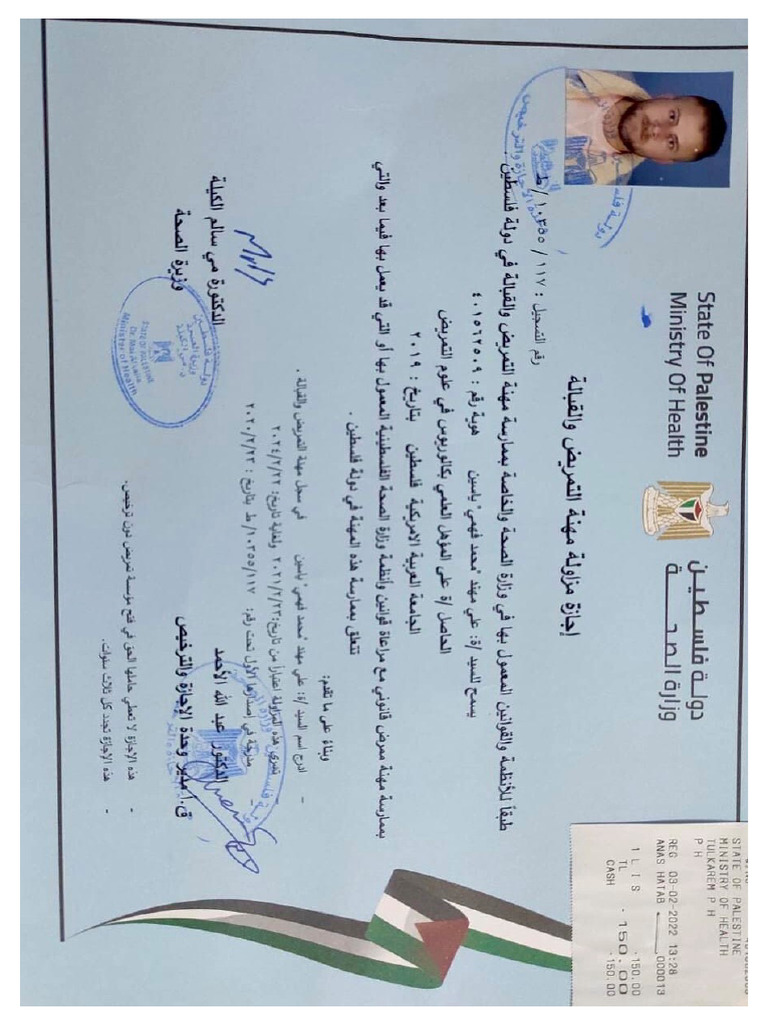 State Of Palestine
Ministry Of Health
دولة فلسطين
وزارة الصحة
إجازة مزاولة مهنة التمريض والقبالة
رقم التسجيل : ١١٧ / ١٠٣٥٥ / ط
طبقاً للأنظمة والقوانين المعمول بها في وزارة الصحة والخاصة بممارسة مهنة التمريض والقبالة في دولة فلسطين .
يسمح للسيد /ة: علي مهند "محمد فهمي" ياسين هوية رقم : ٤٠١٥٦٢٥٠٩
الحاصل /ة على المؤهل العلمي بكالوريوس في علوم التمريض
الجامعة العربية الامريكية فلسطين بتاريخ : ٢٠١٩
بممارسة مهنة ممرض قانوني مع مراعاة قوانين وأنظمة وزارة الصحة الفلسطينية المعمول بها أو التي قد يعمل بها فيما بعد والتي
تتعلق بممارسة هذه المهنة في دولة فلسطين .
وبناءً على ما تقدم:
- ادرج اسم السيد /ة: علي مهند "محمد فهمي" ياسين في سجل مهنة التمريض والقبالة .
تسري هذه المزاولة اعتباراً من تاريخ: ٢٠٢١/٢/٢٣ ولغاية تاريخ: ٢٠٢٤/٢/٢٢
مدرجة في إصدارها الأول تحت رقم: ١٠٣٥٥/١١٧/ط بتاريخ : ٢٠٢٠/٢/٢٣
الدكتور عبد الله الأحمد
ق.أ.مدير وحدة الإجازة والترخيص
الدكتورة مي سالم الكيلة
وزيرة الصحة
دولة فلسطين
وزارة الصحة
STATE OF PALESTINE
Dr. Mai Al-kaila
Minister of Health
- هذه الإجازة لا تعطي حاملها الحق في فتح مؤسسة تمريض دون ترخيص.
- هذه الإجازة تجدد كل ثلاث سنوات.
STATE OF PALESTINE
MINISTRY OF HEALTH
TULKAREM P H
P H
REG 03-02-2022 13:28
ANAS HATAB 000013
1 L I S ·150.00
TL ·150.00
CASH ·150.00